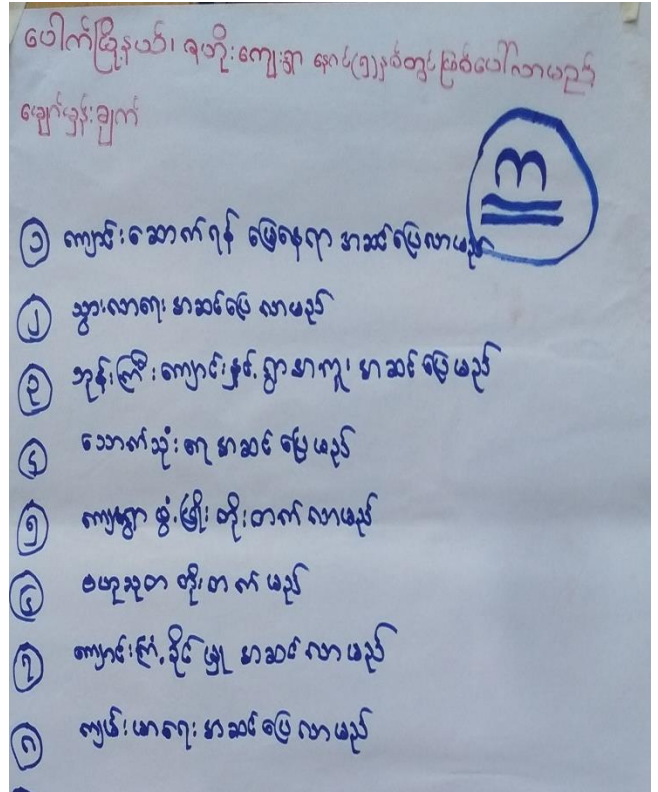 ပေါက်မြို့နယ်၊ ဇဟိုးကျေးရွာ နောင်(၅)နှစ်တွင် ဖြစ်ပေါ်လာမည့်
မျှော်မှန်းချက်
က
၁ ကျောင်းဆောက်ရန် မြေနေရာ အဆင်ပြေလာမည်
၂ သွားလာရေး အဆင်ပြေ လာမည်
၃ ဘုန်းကြီးကျောင်းနှင့် ရွာအကူး အဆင်ပြေမည်
၄ သောက်သုံးရေ အဆင်ပြေမည်
၅ ကျေးရွာ ဖွံ့ဖြိုး တိုးတက် လာမည်
၆ ဗဟုသုတ တိုးတက်မည်
၇ ကျောင်းကြံ့ခိုင်မှု အဆင် လာမည်
၈ ကျမ်းမာရေး အဆင်ပြေ လာမည်